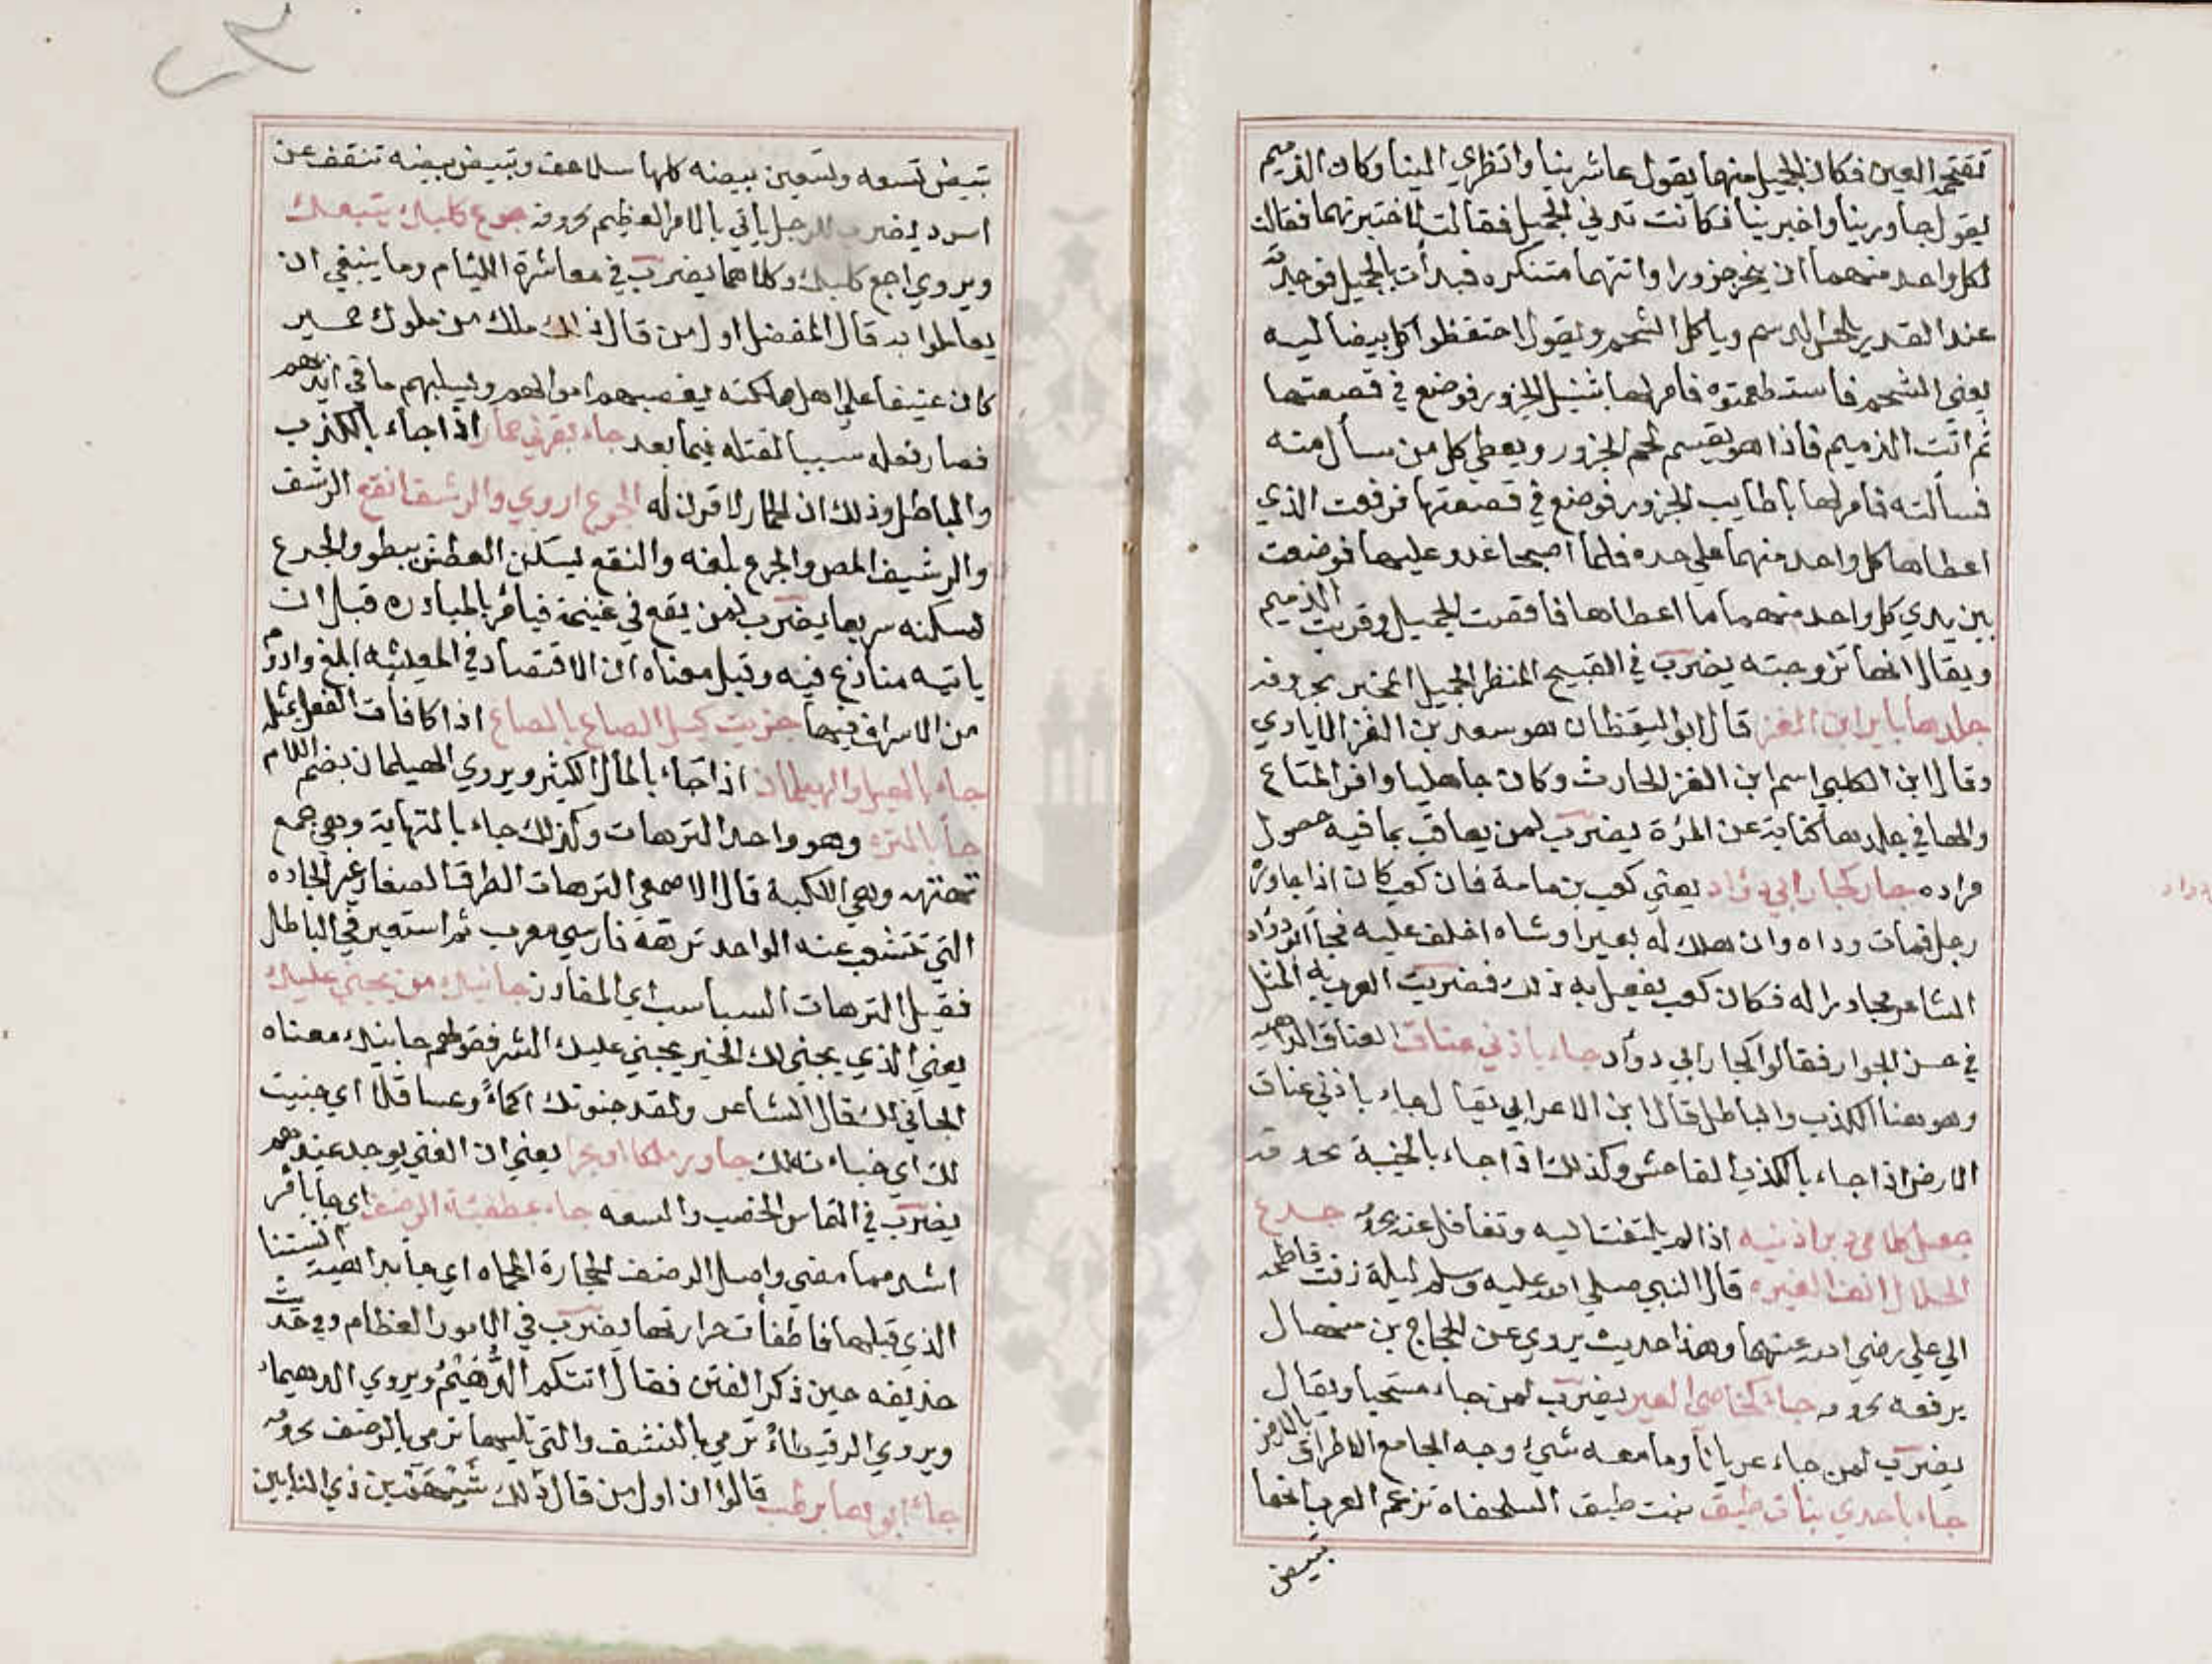 تقتحمه العين فكان الجميل منهما يقول عاشرينا وانظري الينا وكان الذميم
يقول جاورينا واخبرينا فكانت تدني الجميل فقالت لاختبرنهما فقالت
لكل واحد منهما ان ينحر جزورا واتتهما متنكره فبدأت بالجميل فوجدته
عند القدر يلحس الدسم وياكل الشحم ويقول احتفظوا كل بيضا ليه
يعني الشحم فاستطعمته فامر لها بثيل الجزور فوضع في قصعتها
ثم اتت الذميم فاذا هو يقسم لحم الجزور ويعطي كل من سأل منه
فسالته فامر لها باطايب الجزور فوضع في قصعتها فرفعت الذي
اعطاها كل واحد منهما علي حده فلما اصبحا غدو عليها فوضعت
بين يدي كل واحد منهما ما اعطاها فاقصت الجميل وقربت الذميم
ويقال انها تزوجته يضرب في القبيح المنظر الجميل المخبر بحروفه
جلدها باير ابن الغز قال ابو اليقظان هو سعد بن الغز الايادي
وقال ابن الكلبي اسم ابن الغز الحارث وكان جاهليا وافر المتاع
والها في جلدها كناية عن المرّة يضرب لمن يعاقب بما فيه حصول
مراده جار كجار ابي دؤاد يعني كعب بن مامة فان كعب كان اذا جاوره
رجل فمات وداه وان هلك له بعير او شاه اخلف عليه فجاء ابو دؤاد
الشاعر مجاورا له فكان كعب يفعل به ذلك فضربت العرب به المثل
في حسن الجوار فقالوا كجار ابي دوأد جاء باذني عناق العناق الداهيه
وهو هنا الكذب والباطل قال ابن الاعرابي يقال جاء باذني عناق
الارض اذا جاء بالكذب الفاحش وكذلك اذا جاء بالخيبة بحروفه
جعل كلامي دبر اذنيه اذا لم يلتفت اليه وتغافل عنه بحروفه جدع
الحلال انف الغيره قال النبي صلي الله عليه وسلم ليلة زفت فاطمة
الي علي رضي الله عنهما وهذا حديث يروي عن الحجاج بن منهال
يرفعه بحروفه جاء كخاصي العير يضرب لمن جاء مستحيا ويقال
يضرب لمن جاء عريانا وما معه شيئ وجه الجامع الاطراق بالارض
جاء باحدي بنات طبق بنت طبق السلحفاه تزعم العرب انها
تبيض
تبيض تسعه وتسعين بيضه كلها سلاحف وتبيض بيضه تنقف عن
اسود يضرب للرجل ياتي بالامر العظيم بحروفه جوع كلبك يتبعك
ويروي اجع كلبك وكلاهما يضرب في معاشرة الليئام وما ينبغي ان
يعاملوا به قال المفضل اول من قال ذلك ملك من ملوك حمير
كان عنيفا علي اهل مملكته يغصبهم اموالهم ويسلبهم ما في ايديهم
فصار فعله سببا لقتله فيما بعد جاء بقرني حمار اذا جاء بالكذب
والباطل وذلك ان الحمار لا قرن له الجرع اروي والرشف انقع الرشف
والرشيف المص والجرع بلعه والنقع تسكن العطش ببطو والجرع
تسكنه سريعا يضرب لمن يقع في غنيمة فيامر بالمبادره قبل ان
ياتيه منازع فيه وقيل معناه ان الاقتصاد في المعيشه ابلغ وادوم
من الاسراف فيها جزيت كيل الصاع بالصاع اذا كافأت الفعل بمثله
جاء بالهيل والهيلمان اذا جاء بالمال الكثير ويروي الهيلمان بضم اللام
جاء بالتره وهو واحد الترهات وكذلك جاء بالتهاته وهي جمع
تهتهه وهي اللكنة قال الاصمعي الترهات الطرق الصغار غير الجاده
التي تتشعب عنه الواحد ترهة فارسي معرب ثم استعير في الباطل
فقيل الترهات السباسب اي المفاوز جانيك من يجني عليك
يعني الذي يجني لك الخير يجني عليك الشر فقولهم جانيك معناه
الجاني لك قال الشاعر ولقد جنوتك اكماءً وعساقلا اي جنيت
لك اي جناءته لك جاور ملكا او بحرا يعني ان الغني يوجد عندهم
يضرب في التماس الخصب والسعه جاء بمطفئة الرضف اي جاء بامر
اشد مما مضي واصل الرضف الحجارة المحماه اي جا بداهية انستنا
الذي قبلها فاطفأت حرارتها يضرب في الامور العظام وفي حديث
حذيفه حين ذكر الفتن فقال اتتكم الدُّهَيْمُ ويروي الدهيماء
ويروي الرقيطاءُ ترمي بالنشف والتي تليها ترمي بالرضف بحروفه
جاء ابوها برطب قالوا ان اول من قال ذلك شيهم بن ذي النابين